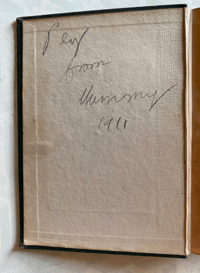 from
Mummy
1911